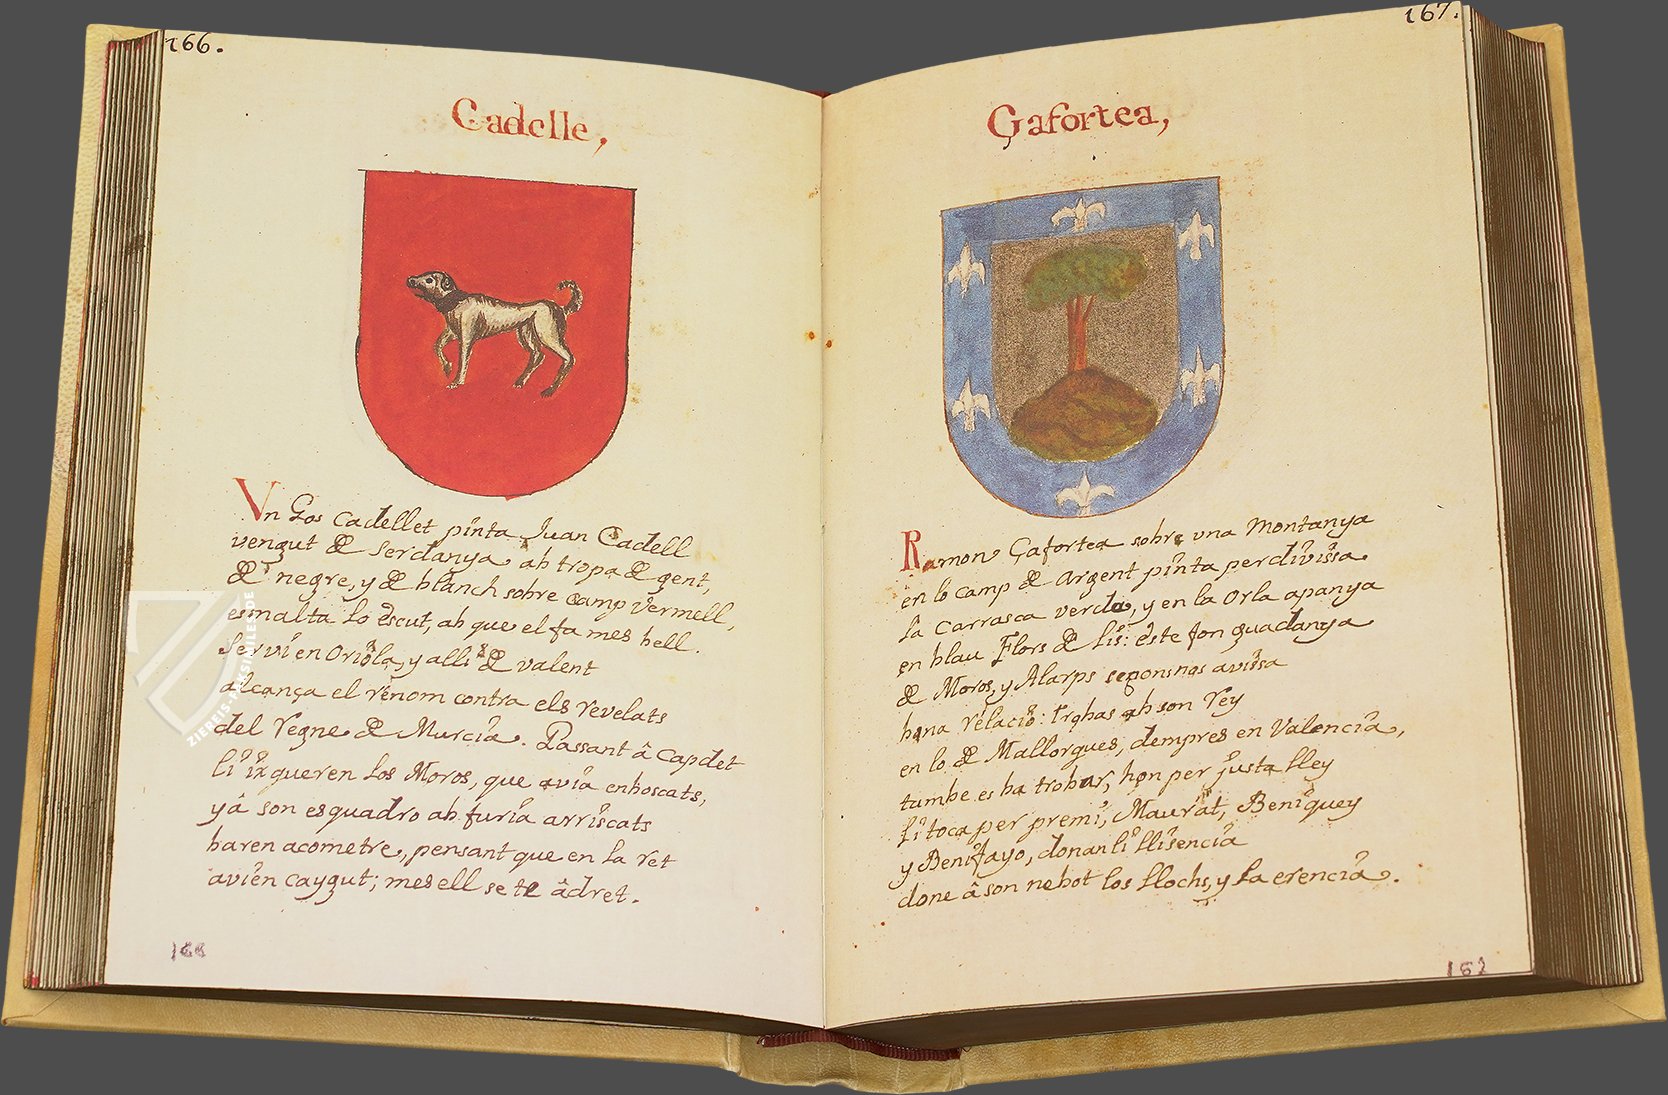 166.
Cadelle,
Vn Gos cadellet pinta Juan Cadell
vengut de Serdanya ab tropa de gent,
de negre, y de blanch sobre camp vermell,
esmalta lo escut, ab que el fa mes bell.
Serví en Oriôla, y alli de valent
alcança el renom contra els revelats
del regne de Murcia. Passant â Capdet
li ixqueren los Moros, que avia enboscats,
y â son esquadro ab furia arriscats
haren acometre, pensant que en la ret
avien caygut; mes ell se te âdret.
166
167.
Çafortea,
Ramon Çafortea sobre una montanya
en lo camp de argent pinta per divissa
la carrasca verda, y en la orla apanya
en blau Flors de Lis: este fon guadanya
de Moros, y Alarps segons nos avissa
bona relació: ab son rey
en lo de Mallorques, dempres en Valencia,
tambe es ha trobar, hon per justa lley
li toca per premi, Maurat, Beniquey
y Benifayo, donanli llisencia
done â son nebot los llochs, y la erencia.
167
ZIEREIS-FAKSIMILES.DE